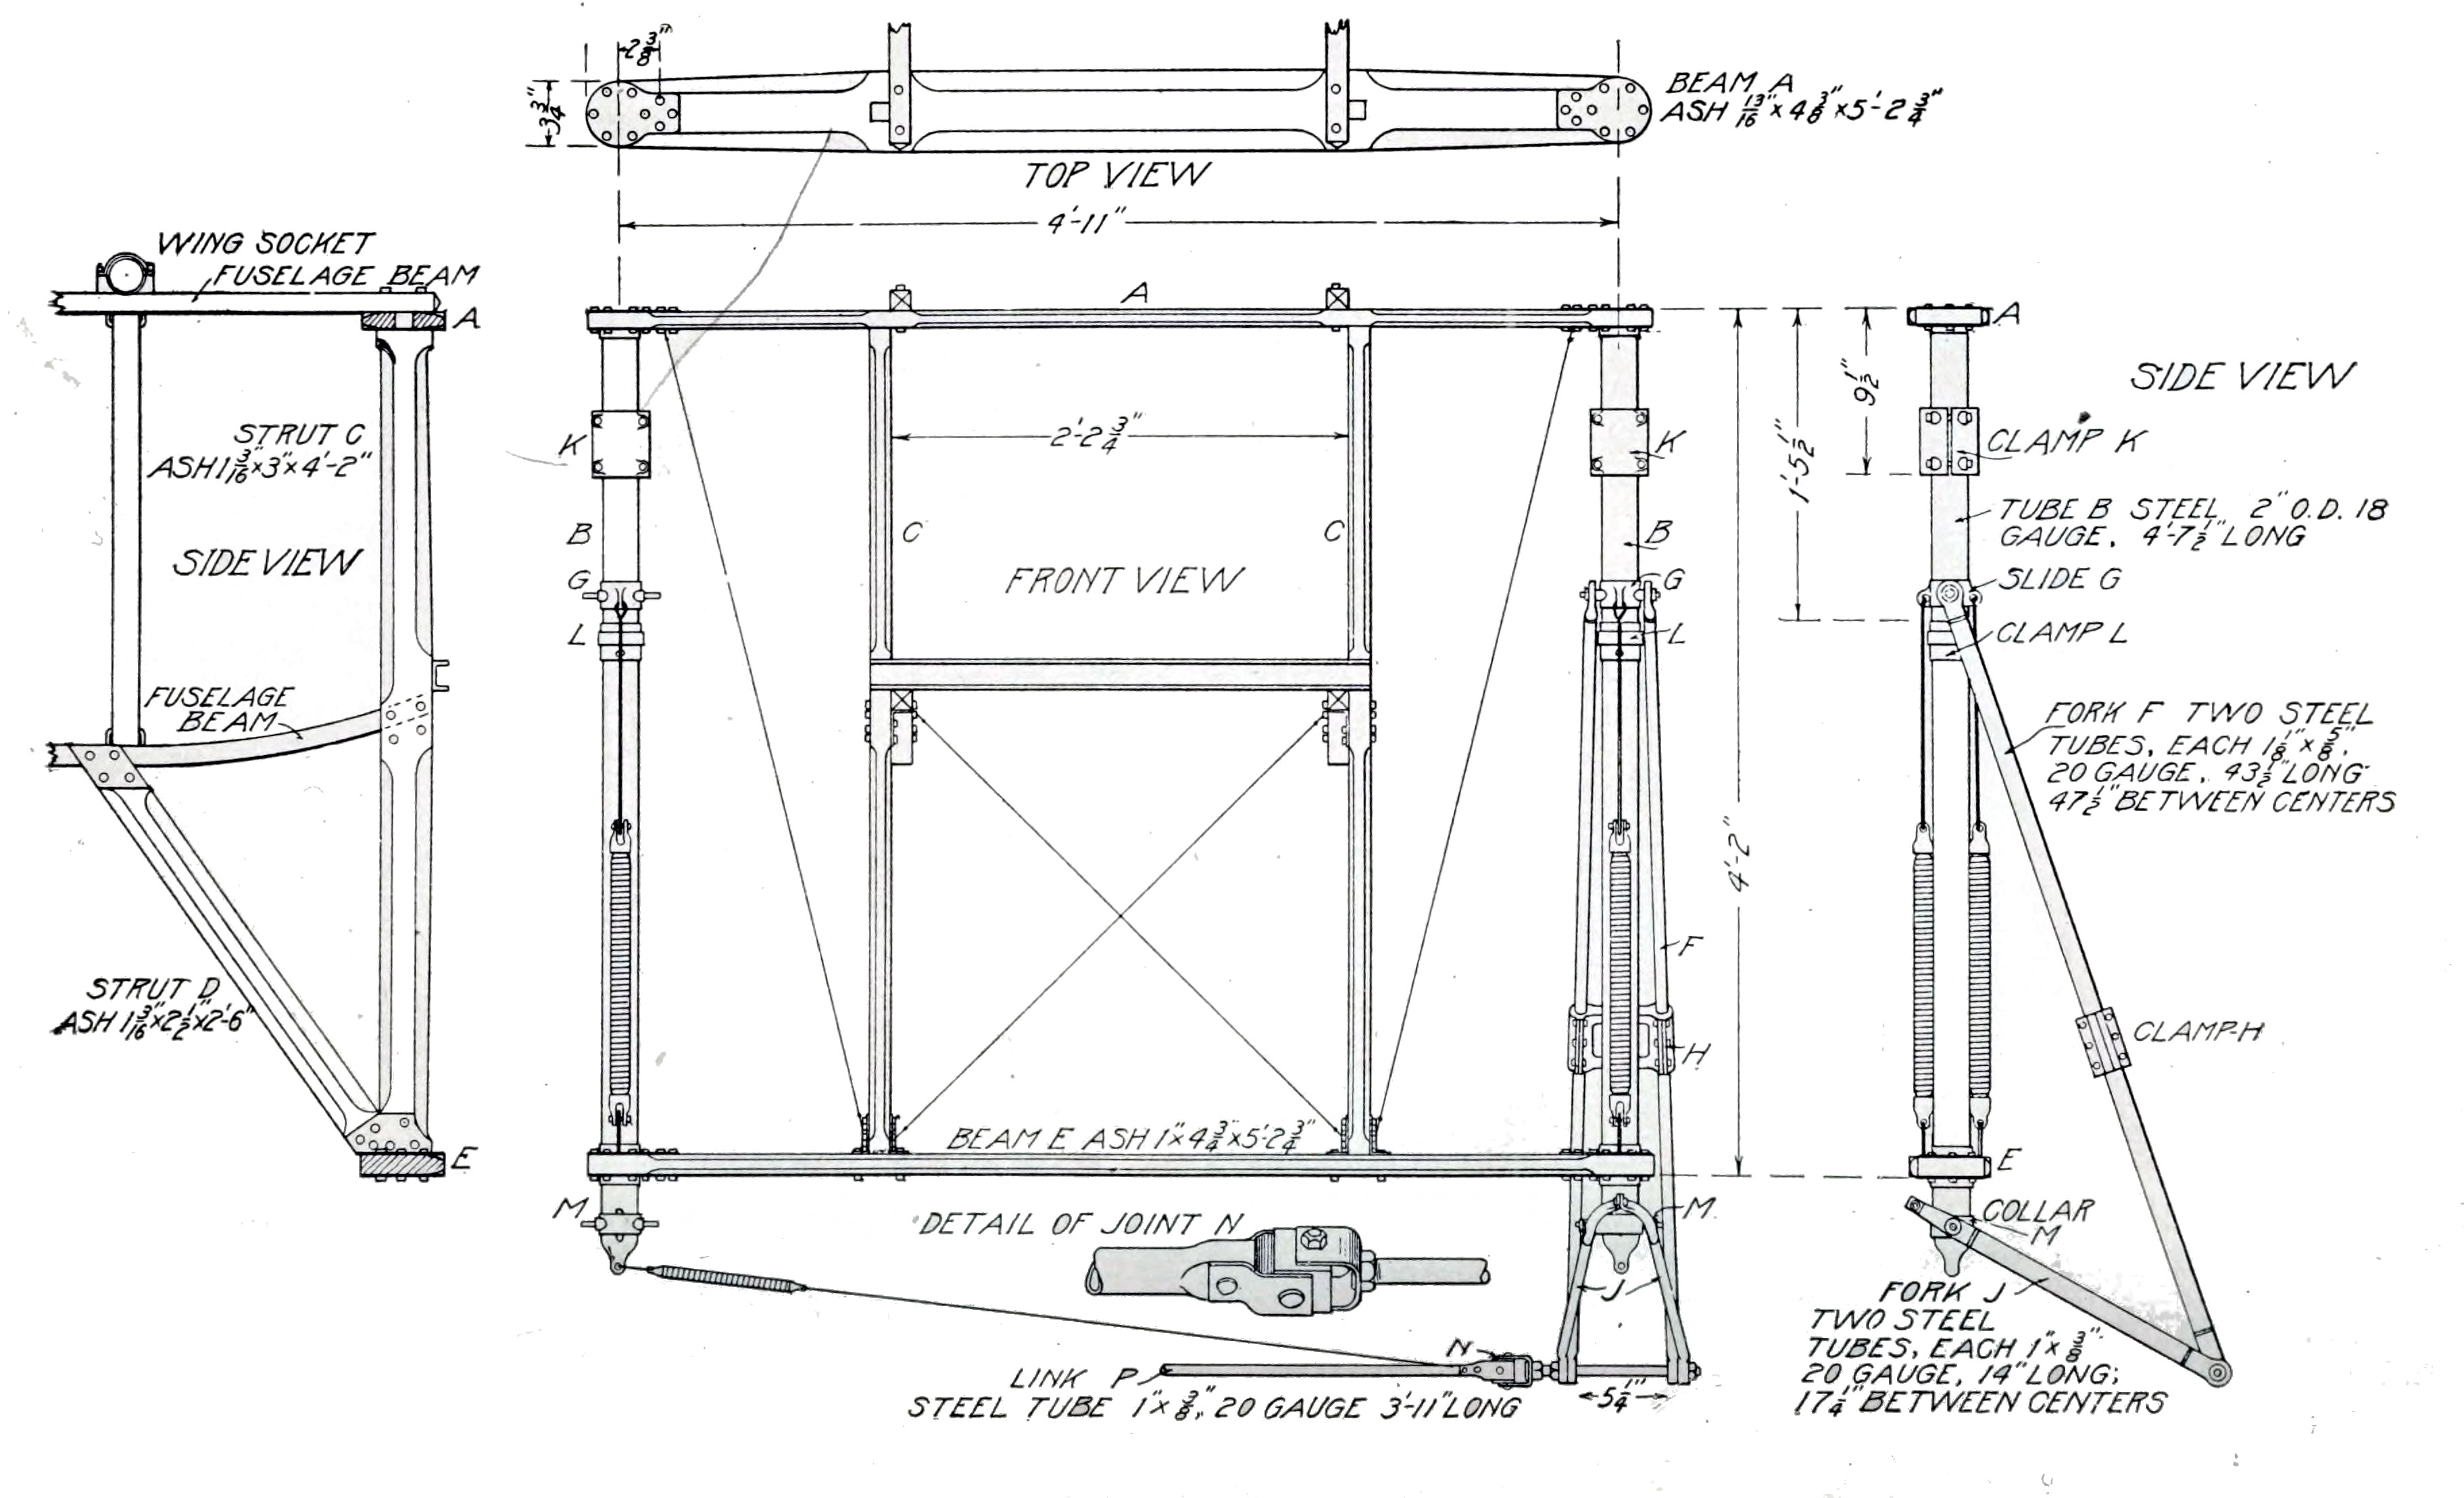 2 3/8"
3 3/4"
BEAM A
ASH 13/16" x 4 3/8" x 5'-2 3/4"
TOP VIEW
4'-11"
WING SOCKET
FUSELAGE BEAM
A
STRUT C
ASH 1 3/16" x 3" x 4'-2"
SIDE VIEW
FUSELAGE
BEAM
STRUT D
ASH 1 3/16" x 2 1/2" x 2'-6"
E
A
K
2'-2 3/4"
K
B
C
C
B
G
FRONT VIEW
G
L
L
F
H
BEAM E ASH 1" x 4 3/4" x 5'-2 3/4"
M
M
DETAIL OF JOINT N
J
N
LINK P
STEEL TUBE 1" x 3/8", 20 GAUGE 3'-11" LONG
5 1/4"
4'-2"
1'-5 1/2"
9 1/2"
A
SIDE VIEW
CLAMP K
TUBE B STEEL 2" O.D. 18
GAUGE, 4'-7 1/2" LONG
SLIDE G
CLAMP L
FORK F TWO STEEL
TUBES, EACH 1 1/8" x 5/8",
20 GAUGE, 43 1/2" LONG
47 1/2" BETWEEN CENTERS
CLAMP-H
E
COLLAR
M
FORK J
TWO STEEL
TUBES, EACH 1" x 3/8"
20 GAUGE, 14" LONG;
17 1/4" BETWEEN CENTERS